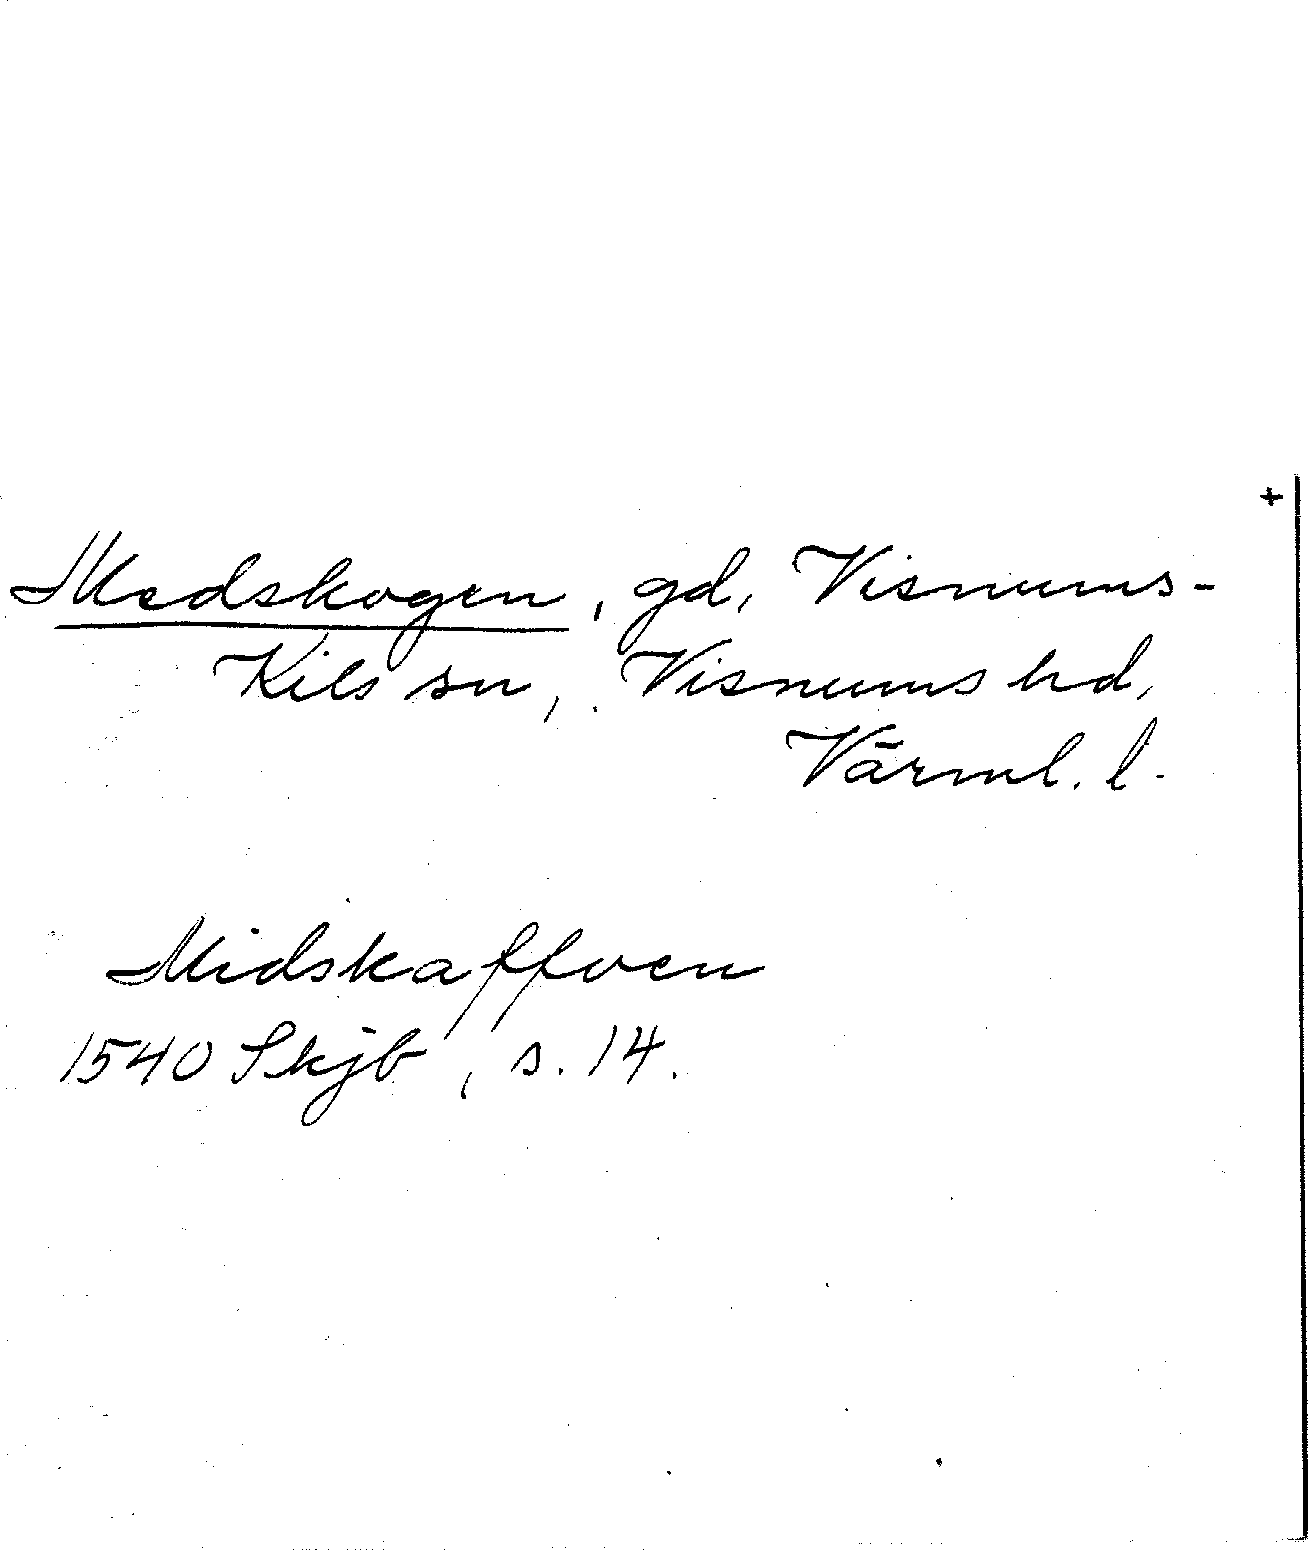 +
Medskogen, gd, Visnums-
Kils sn, Visnums hd,
Värml. l.
Midskaffven
1540 Skjb, s. 14.